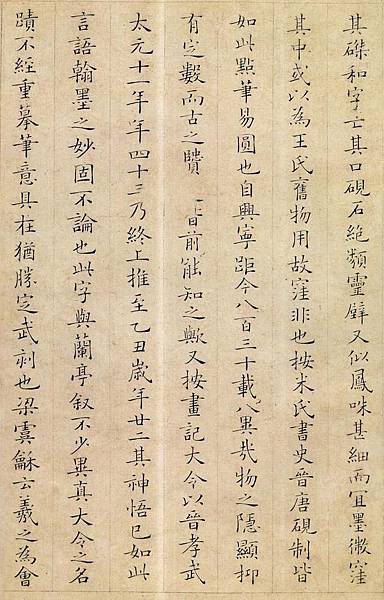 其磔和字亡其口硯石絶類靈璧又似鳳咮甚細而宜墨微窪
其中或以為王氏舊物用故窪非也按米氏書史晉唐硯制皆
如此點筆易圓也自興寧距今八百三十載八異哉物之隱顯抑
有定數而古之賢前能知之歟又按畫記大令以晉孝武
太元十一年年四十三乃終上推至乙丑歲年廿二其神悟已如此
言語翰墨之妙固不論也此字與蘭亭叙不少異真大令之名
蹟不經重摹筆意具在猶勝定武刻也梁虞龢云羲之為會